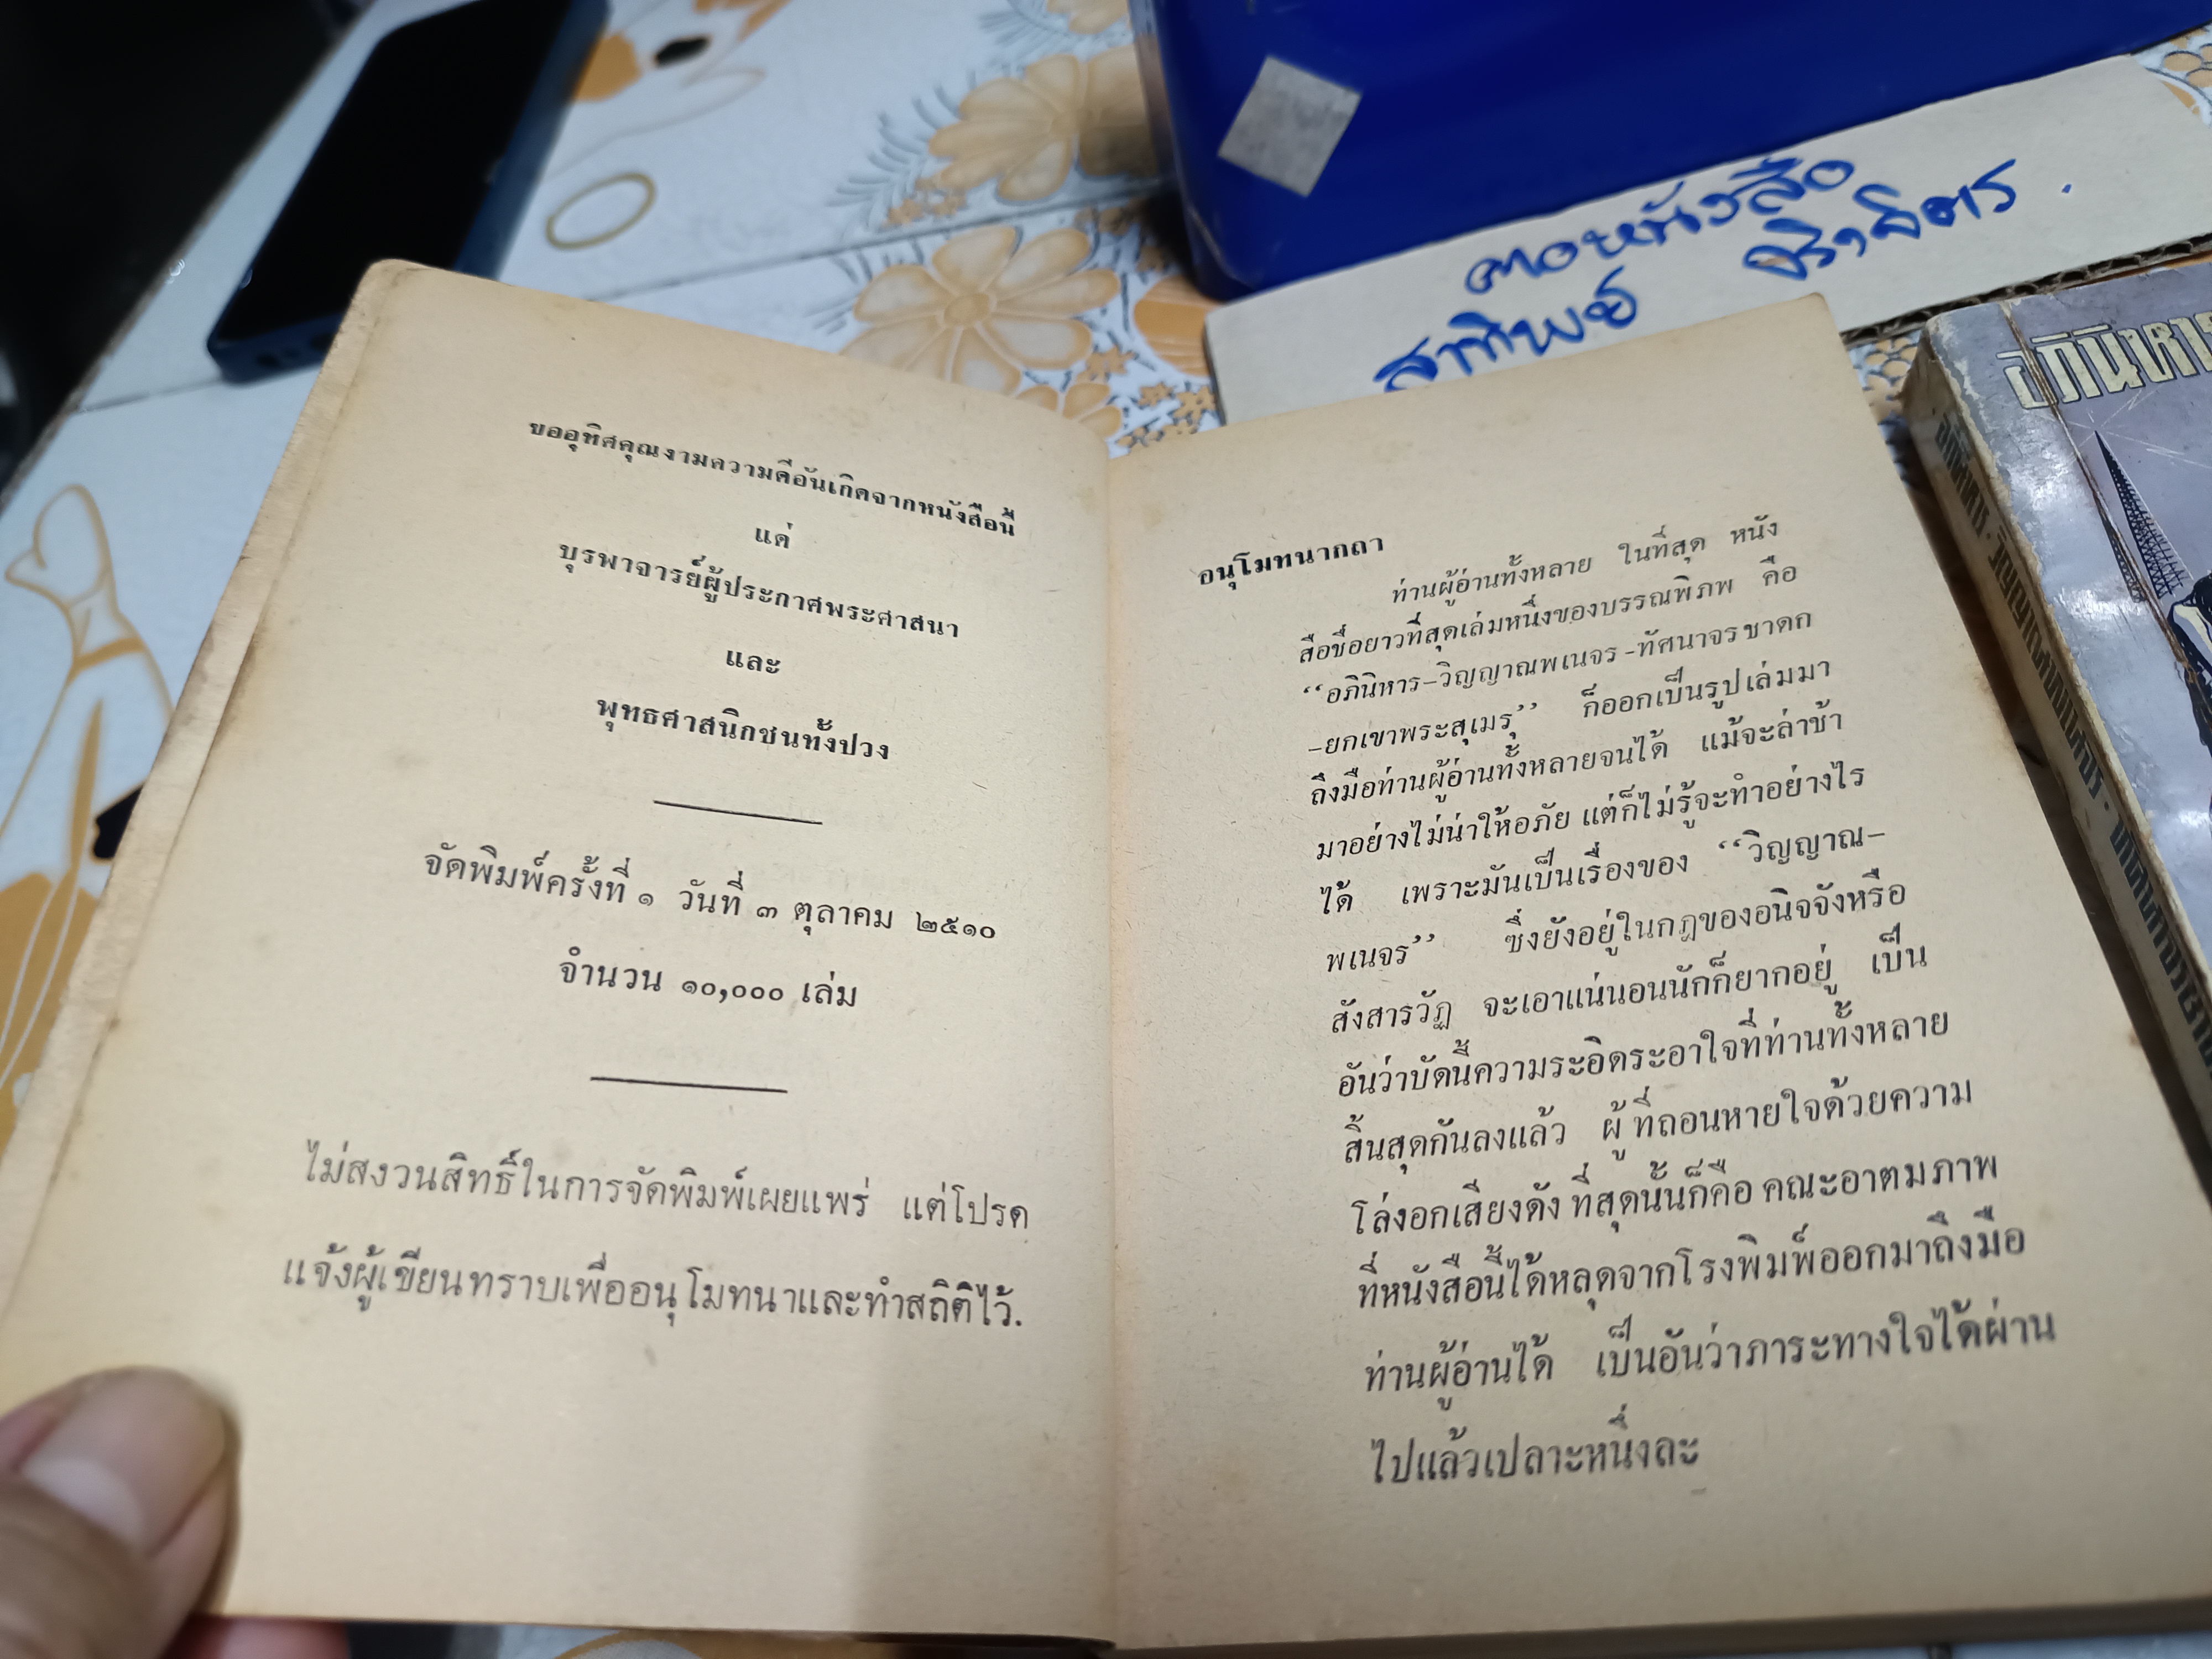 ขออุทิศคุณงามความดีอันเกิดจากหนังสือนี้
แด่
บุรพาจารย์ผู้ประกาศพระศาสนา
และ
พุทธศาสนิกชนทั้งปวง
จัดพิมพ์ครั้งที่ ๑ วันที่ ๓ ตุลาคม ๒๕๑๐
จำนวน ๑๐,๐๐๐ เล่ม
ไม่สงวนสิทธิ์ในการจัดพิมพ์เผยแพร่ แต่โปรด
แจ้งผู้เขียนทราบเพื่ออนุโมทนาและทำสถิติไว้.
อนุโมทนากถา
ท่านผู้อ่านทั้งหลาย ในที่สุด หนัง
สือชื่อยาวที่สุดเล่มหนึ่งของบรรณพิภพ คือ
“อภินิหาร–วิญญาณพเนจร–ทัศนาจรชาดก
–ยกเขาพระสุเมรุ” ก็ออกเป็นรูปเล่มมา
ถึงมือท่านผู้อ่านทั้งหลายจนได้ แม้จะล่าช้า
มาอย่างไม่น่าให้อภัย แต่ก็ไม่รู้จะทำอย่างไร
ได้ เพราะมันเป็นเรื่องของ “วิญญาณ–
พเนจร” ซึ่งยังอยู่ในกฎของอนิจจังหรือ
สังสารวัฏ จะเอาแน่นอนนักก็ยากอยู่ เป็น
อันว่าบัดนี้ความระอิดระอาใจที่ท่านทั้งหลาย
สิ้นสุดกันลงแล้ว ผู้ที่ถอนหายใจด้วยความ
โล่งอกเสียงดังที่สุดนั้นก็คือ คณะอาตมภาพ
ที่หนังสือนี้ได้หลุดจากโรงพิมพ์ออกมาถึงมือ
ท่านผู้อ่านได้ เป็นอันว่าภาระทางใจได้ผ่าน
ไปแล้วเปลาะหนึ่งละ
คอหนังสือ
สาทิพย์
อภินิหาร